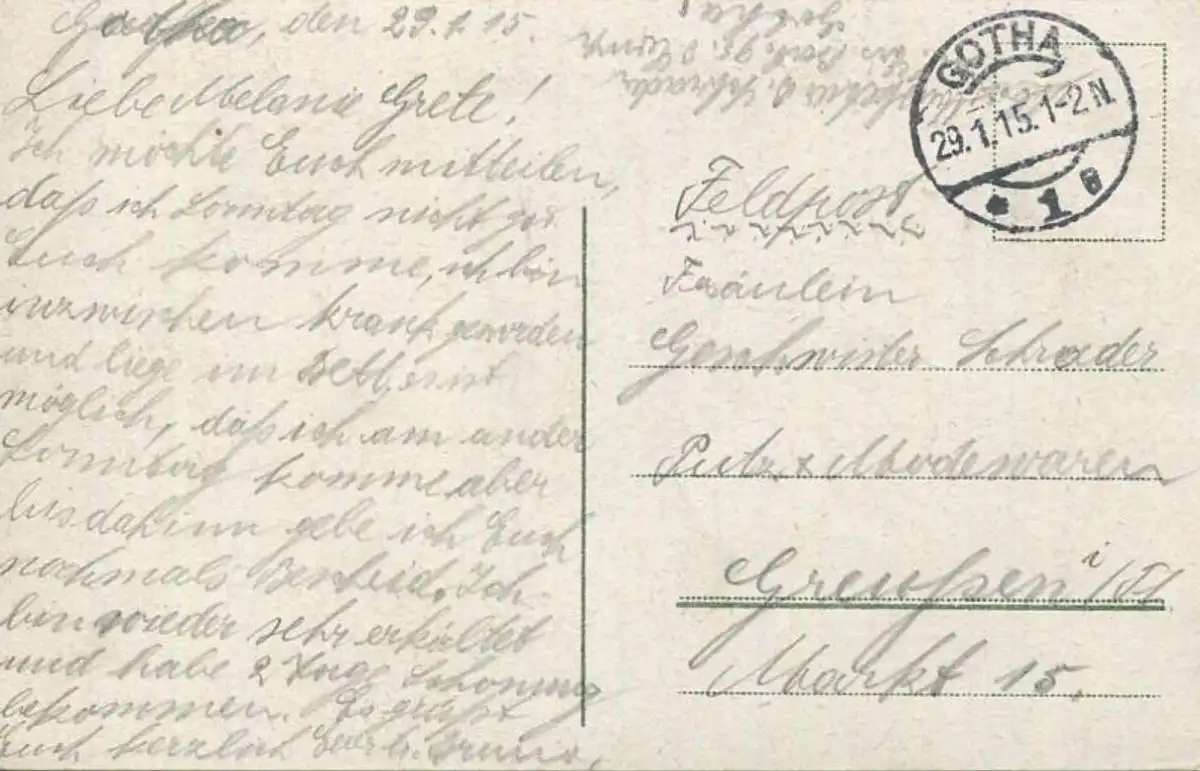 Gotha, den 29.1.15.
Liebe Melanie Grete!
Ich möchte Euch mitteilen,
daß ich Sonntag nicht zu
Euch komme, ich bin
inzwischen krank geworden
und liege im Bett es ist
möglich, daß ich am ander
Sonntag komme aber
bis dahinn gebe ich Euch
nochmals Bescheid. Ich
bin wieder sehr erkältet
und habe 2 Tage Schonung
bekommen. Es grüßt
Euch herzlich Euer Bruno.
O. Schrader
Gotha
GOTHA
29.1.15.1-2N.
* 1 a
Feldpost
Fräulein
Geschwister Schrader
Putz & Modewaren
Greußen i/Th
Markt 15.